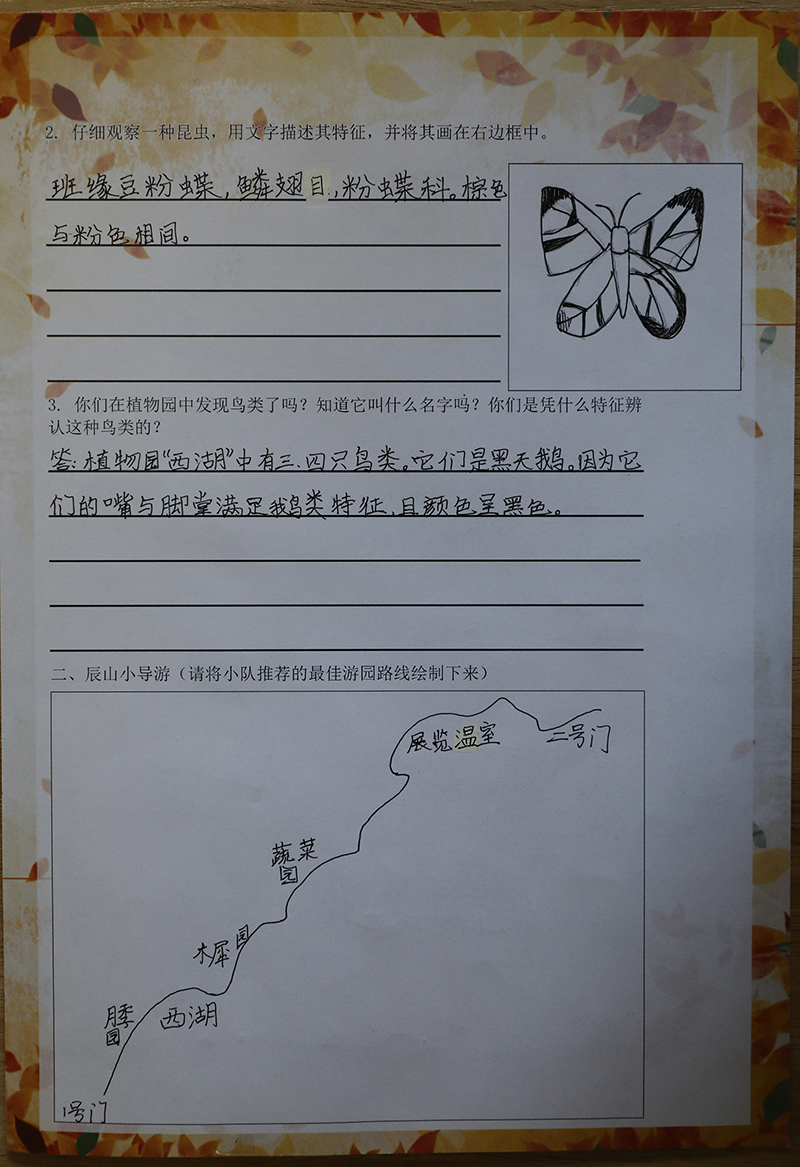 2. 仔细观察一种昆虫，用文字描述其特征，并将其画在右边框中。
班缘豆粉蝶，鳞翅目，粉蝶科。棕色
与粉色相间。
3. 你们在植物园中发现鸟类了吗？知道它叫什么名字吗？你们是凭什么特征辨
认这种鸟类的？
答：植物园“西湖”中有三、四只鸟类。它们是黑天鹅。因为它
们的嘴与脚掌满足鹅类特征，且颜色呈黑色。
二、辰山小导游（请将小队推荐的最佳游园路线绘制下来）
展览温室
二号门
蔬菜
园
木犀园
月季
园
西湖
1号门